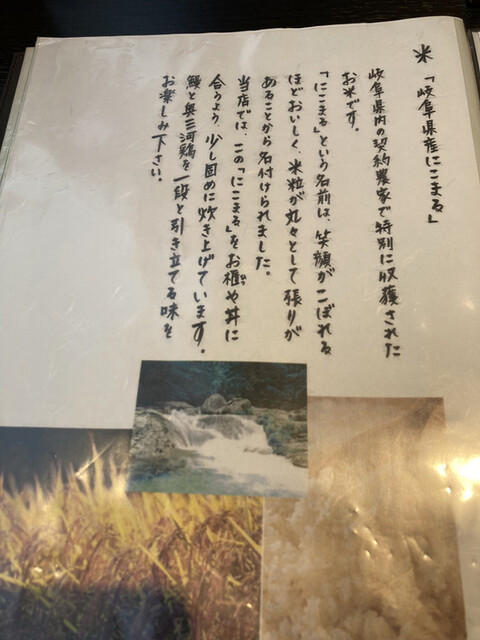 米「岐阜県産にこまる」
岐阜県内の契約農家で特別に収獲された
お米です。
「にこまる」という名前は、笑顔がこぼれる
ほどおいしく、米粒が丸々として張りが
あることから名付けられました。
当店では、この「にこまる」をお櫃や丼に
合うよう、少し固めに炊き上げています。
鰻と奥三河鶏を一段と引き立てる味を
お楽しみ下さい。